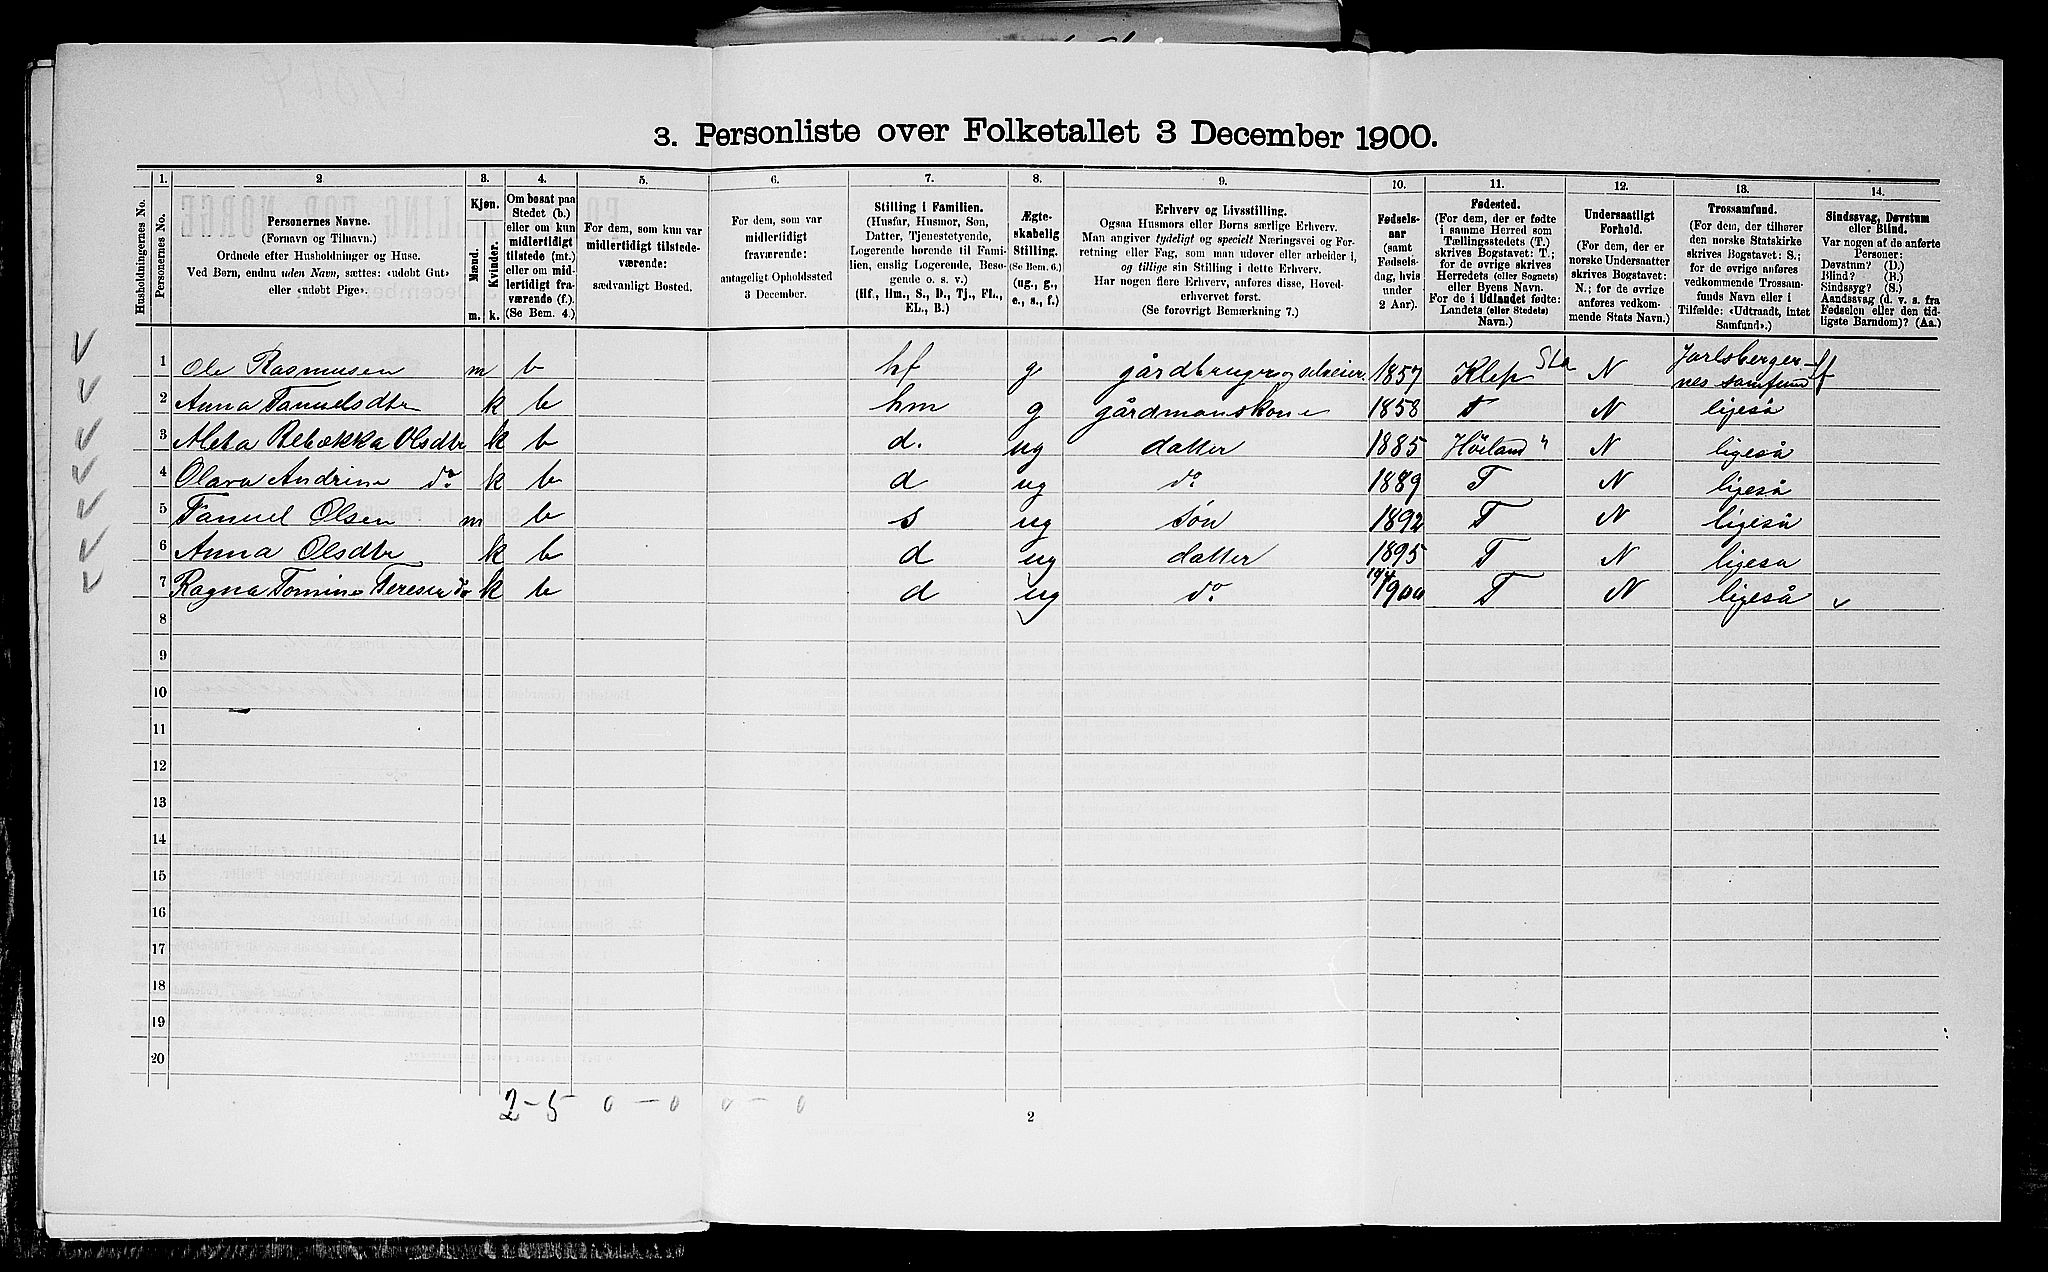 3. Personliste over Folketallet 3 December 1900.
1. 2. 3. 4. 5. 6. 7. 8. 9. 10. 11. 12. 13. 14.
Husholdningernes No.
Personernes No.
Personernes Navne.
(Fornavn og Tilnavn.)
Ordnede efter Husholdninger og Huse.
Ved Børn, endnu uden Navn, sættes: «udøbt Gut»
eller «udøbt Pige».
Kjøn.
Mænd.
Kvinder.
m. k.
Om bosat paa
Stedet (b.)
eller om kun
midlertidigt
tilstede (mt.)
eller om mid-
lertidigt fra-
værende (f.).
(Se Bem. 4.)
For dem, som kun var
midlertidigt tilstede-
værende:
sædvanligt Bosted.
For dem, som var
midlertidigt
fraværende:
antageligt Opholdssted
3 December.
Stilling i Familien.
(Husfar, Husmor, Søn,
Datter, Tjenestetyende,
Logerende hørende til Fami-
lien, enslig Logerende, Besø-
gende o. s. v.)
(Hf., Hm., S., D., Tj., FL.,
EL., B.)
Ægte-
skabelig
Stilling.
(Se Bem. 6.)
(ug., g.,
e., s., f.)
Erhverv og Livsstilling.
Ogsaa Husmors eller Børns særlige Erhverv.
Man angiver tydeligt og specielt Næringsvei og For-
retning eller Fag, som man udøver eller arbeider i,
og tillige sin Stilling i dette Erhverv.
Har nogen flere Erhverv, anføres disse, Hoved-
erhvervet først.
(Se forøvrigt Bemærkning 7.)
Fødsels-
aar
(samt
Fødsels-
dag, hvis
under
2 Aar).
Fødested.
(For dem, der er fødte
i samme Herred som
Tællingsstedets (T.)
skrives Bogstavet: T.;
for de øvrige skrives
Herredets (eller Sognets)
eller Byens Navn.
For de i Udlandet fødte:
Landets (eller Stedets)
Navn.)
Undersaatligt
Forhold.
(For dem, der er
norske Undersaatter
skrives Bogstavet:
N.; for de øvrige
anføres vedkom-
mende Stats Navn.)
Trossamfund.
(For dem, der tilhører
den norske Statskirke
skrives Bogstavet: S.;
for de øvrige anføres
vedkommende Trossam-
funds Navn eller i
Tilfælde: «Udtraadt, intet
Samfund».)
Sindssvag, Døvstum
eller Blind.
Var nogen af de anførte
Personer:
Døvstum? (D.)
Blind? (B.)
Sindssyg? (S.)
Aandssvag (d. v. s. fra
Fødselen eller den tid-
ligste Barndom)? (Aa.)
1 Ole Rasmussen m b hf g gårdbruger og selveier 1857 Klep Sta N Jarlsberger-
nes samfund
2 Anna Tanuelsdtr k b hm g gårdmanskone 1858 T N ligeså
3 Aleta Rebækka Olsdtr k b d. ug datter 1885 Höiland " N ligeså
4 Olava Andrine do. k b d ug do 1889 T N ligeså
5 Tanuel Olsen m b s ug søn 1892 T N ligeså
6 Anna Olsdtr k b d ug datter 1895 T N ligesa
7 Ragna Tomine Teresie do k b d ug do 1900 T N ligeså
8
9
10
11
12
13
14
15
16
17
18
19
20
2-5 0-0 0-0
2